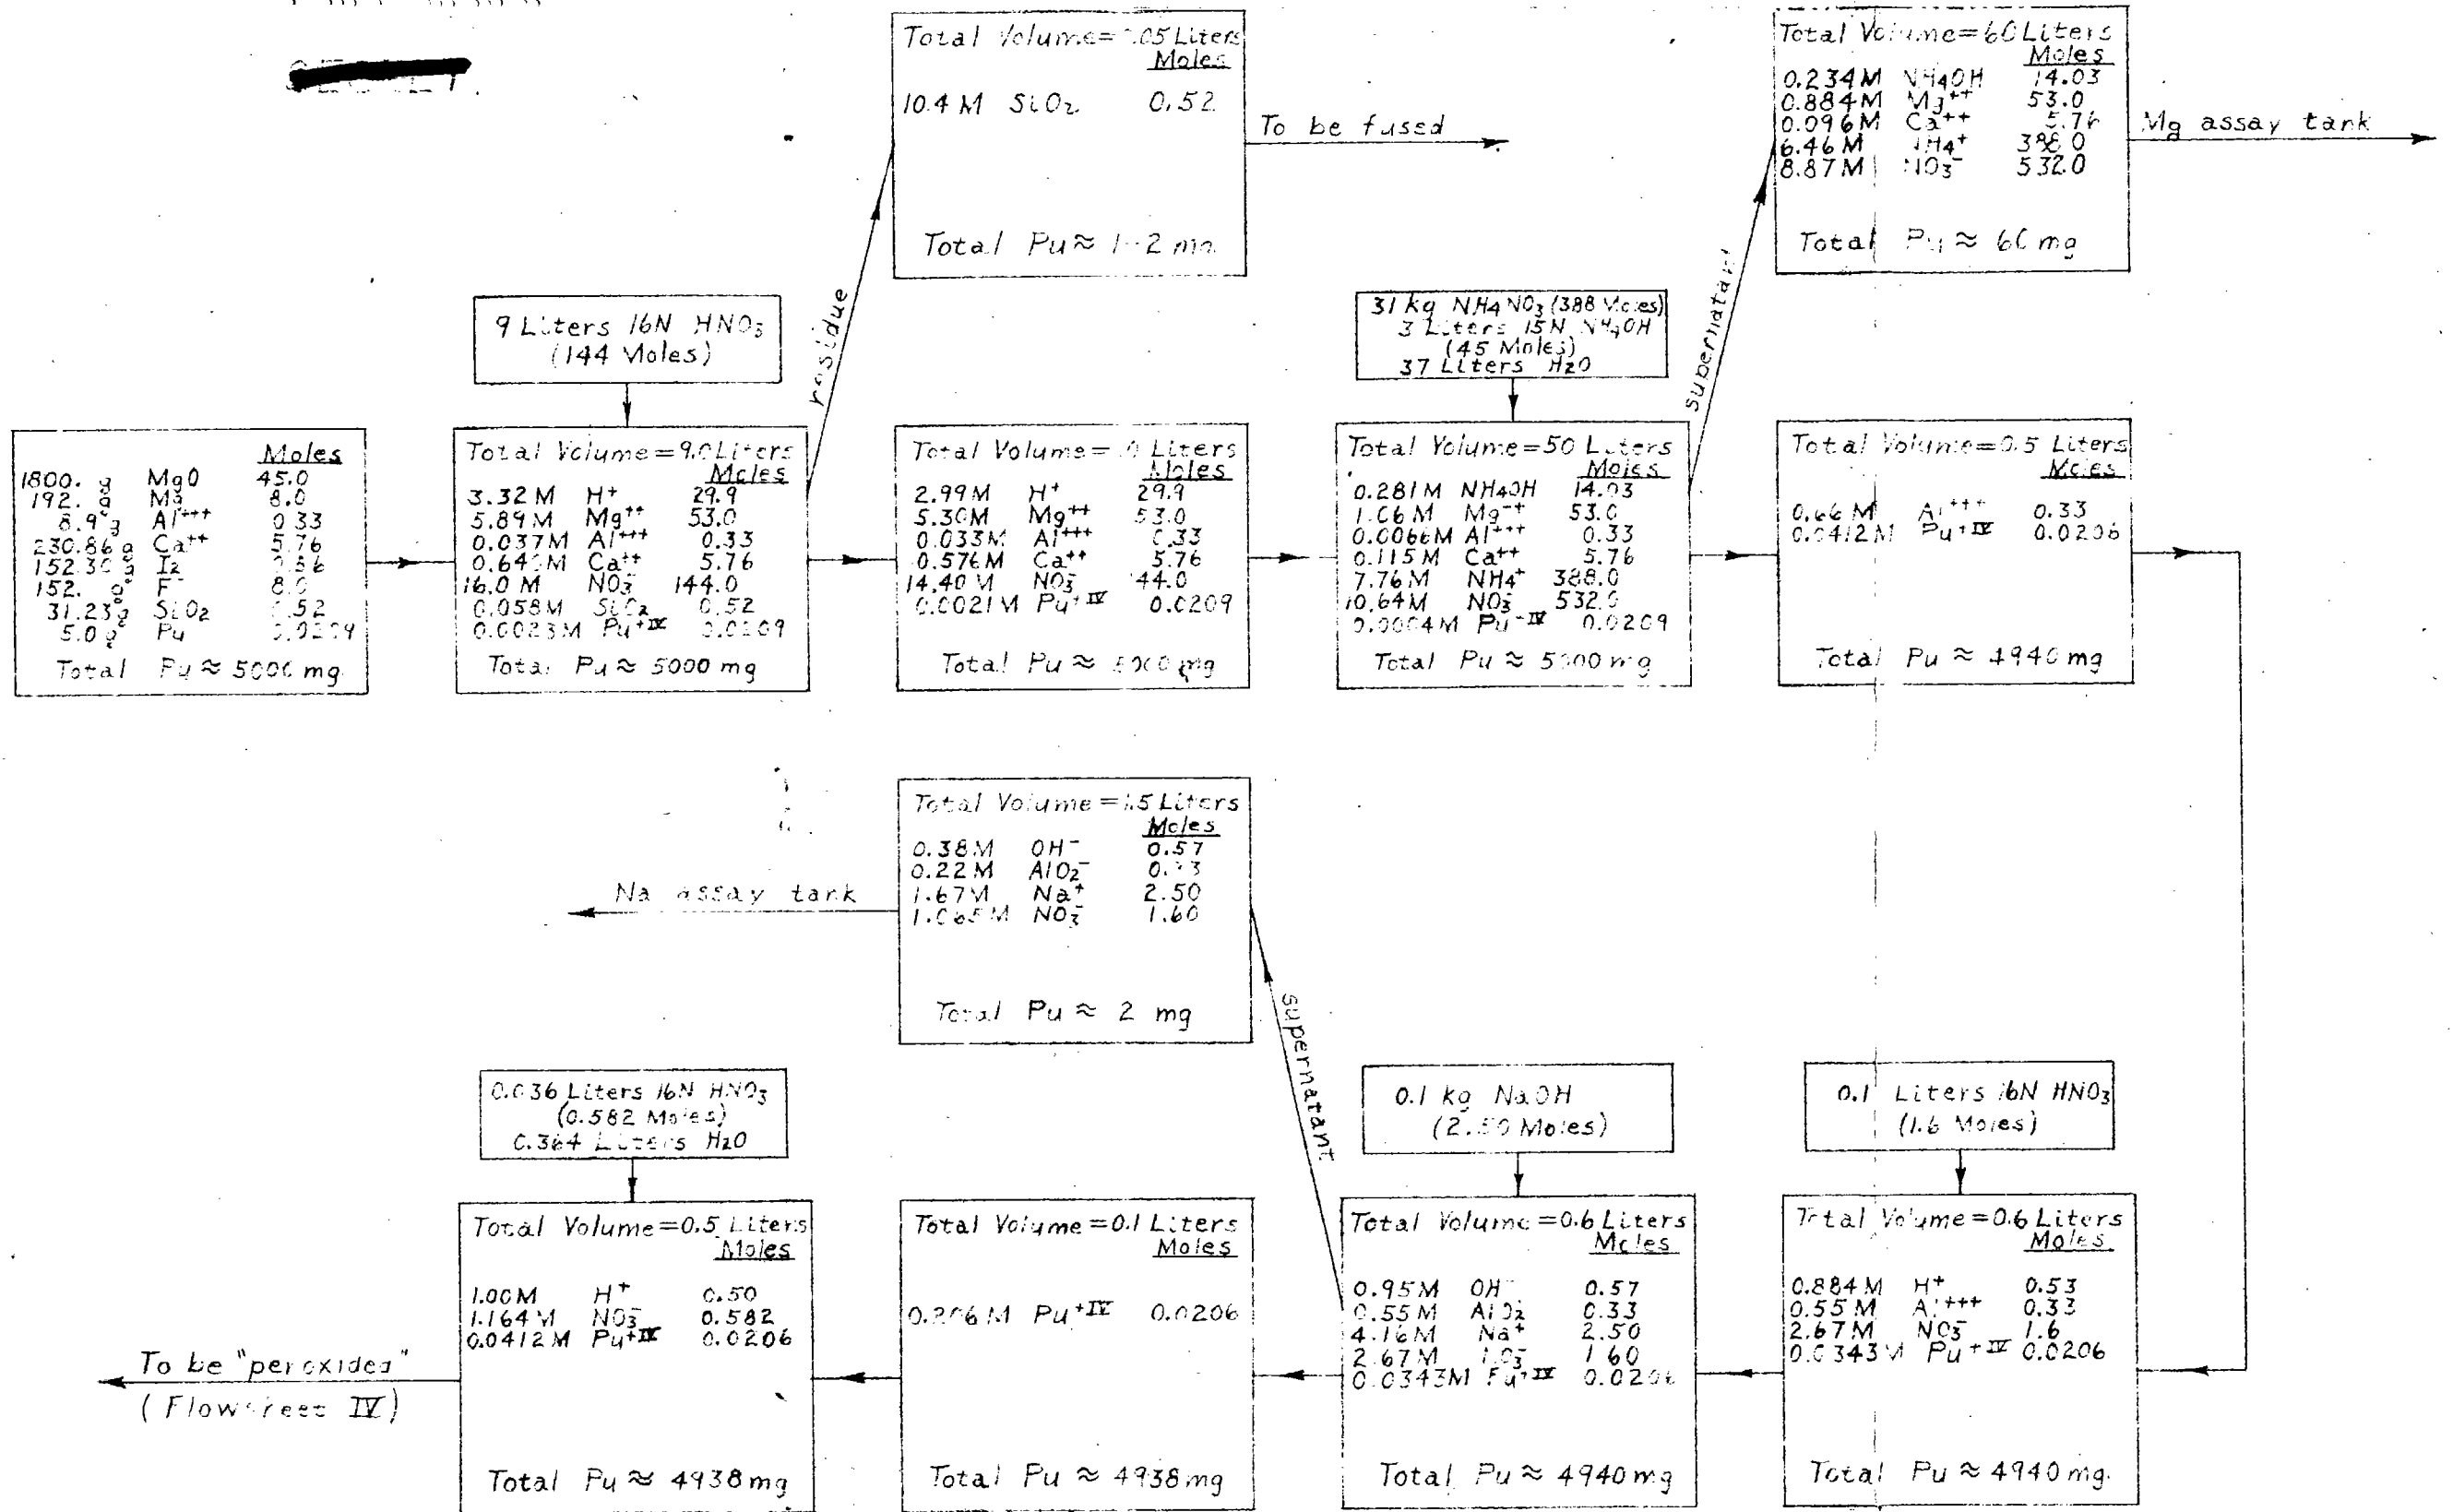 Total Volume=.05 Liters
Moles
10.4 M SiO2 0.52
Total Pu ≈ 1-2 mg.
To be fused
Total Volume=60 Liters
Moles
0.234M NH4OH 14.03
0.884M Mg++ 53.0
0.096M Ca++ 5.76
6.46M NH4+ 388.0
8.87M NO3- 532.0
Total Pu ≈ 60 mg
Mg assay tank
residue
supernatant
9 Liters 16N HNO3
(144 Moles)
31 kg NH4NO3 (388 Moles)
3 Liters 15N NH4OH
(45 Moles)
37 Liters H2O
Moles
1800. g MgO 45.0
192. g Mg 8.0
8.9 g Al+++ 0.33
230.86 g Ca++ 5.76
152.30 g I2
152. g F- 8.0
31.23 g SiO2 0.52
5.0 g Pu 0.0209
Total Pu ≈ 5000 mg.
Total Volume=9.0 Liters
Moles
3.32 M H+ 29.9
5.89M Mg++ 53.0
0.037M Al+++ 0.33
0.640M Ca++ 5.76
16.0 M NO3- 144.0
0.058M SiO2 0.52
0.0023M Pu+IV 0.0209
Total Pu ≈ 5000 mg
Total Volume= Liters
Moles
2.99M H+ 29.9
5.30M Mg++ 53.0
0.033M Al+++ 0.33
0.576M Ca++ 5.76
14.40 M NO3- 144.0
0.0021M Pu+IV 0.0209
Total Pu ≈ 5000 mg
Total Volume=50 Liters
Moles
0.281M NH4OH 14.03
1.06M Mg++ 53.0
0.0066M Al+++ 0.33
0.115M Ca++ 5.76
7.76M NH4+ 388.0
10.64M NO3- 532.0
0.0004M Pu+IV 0.0209
Total Pu ≈ 5000 mg
Total Volume=0.5 Liters
Moles
0.66 M Al+++ 0.33
0.0412M Pu+IV 0.0206
Total Pu ≈ 4940 mg
Total Volume=1.5 Liters
Moles
0.38M OH- 0.57
0.22M AlO2- 0.33
1.67M Na+ 2.50
1.065M NO3- 1.60
Total Pu ≈ 2 mg
Na assay tank
supernatant
0.036 Liters 16N HNO3
(0.582 Moles)
0.364 Liters H2O
0.1 kg NaOH
(2.50 Moles)
0.1 Liters 16N HNO3
(1.6 Moles)
Total Volume=0.5 Liters
Moles
1.00M H+ 0.50
1.164M NO3- 0.582
0.0412M Pu+IV 0.0206
Total Pu ≈ 4938 mg
To be "peroxided"
(Flowsheet IV)
Total Volume=0.1 Liters
Moles
0.206M Pu+IV 0.0206
Total Pu ≈ 4938mg
Total Volume=0.6 Liters
Moles
0.95M OH- 0.57
0.55M AlO2- 0.33
4.16M Na+ 2.50
2.67M NO3- 1.60
0.0343M Pu+IV 0.0206
Total Pu ≈ 4940 mg
Total Volume=0.6 Liters
Moles
0.884M H+ 0.53
0.55M Al+++ 0.33
2.67M NO3- 1.6
0.0343M Pu+IV 0.0206
Total Pu ≈ 4940 mg.